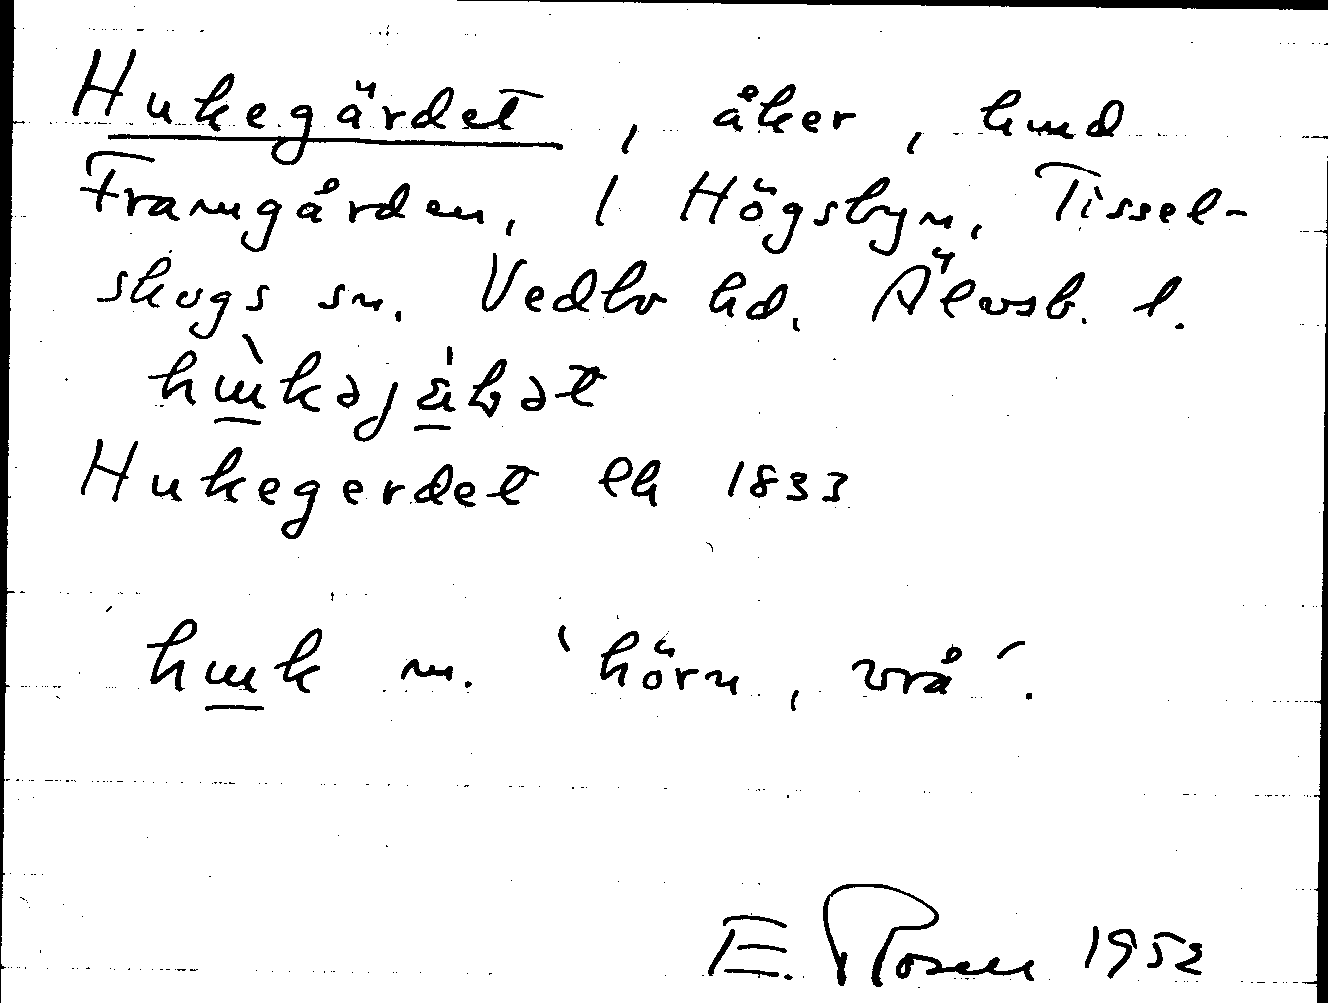 Hukegärdet, åker, hmd
Framgården, 1 Högsbyn, Tissel-
skogs sn. Vedbo hd. Älvsb. l.
Hukegerdet lh 1833
huk m. 'hörn, vrå'.
E. Rosen 1952